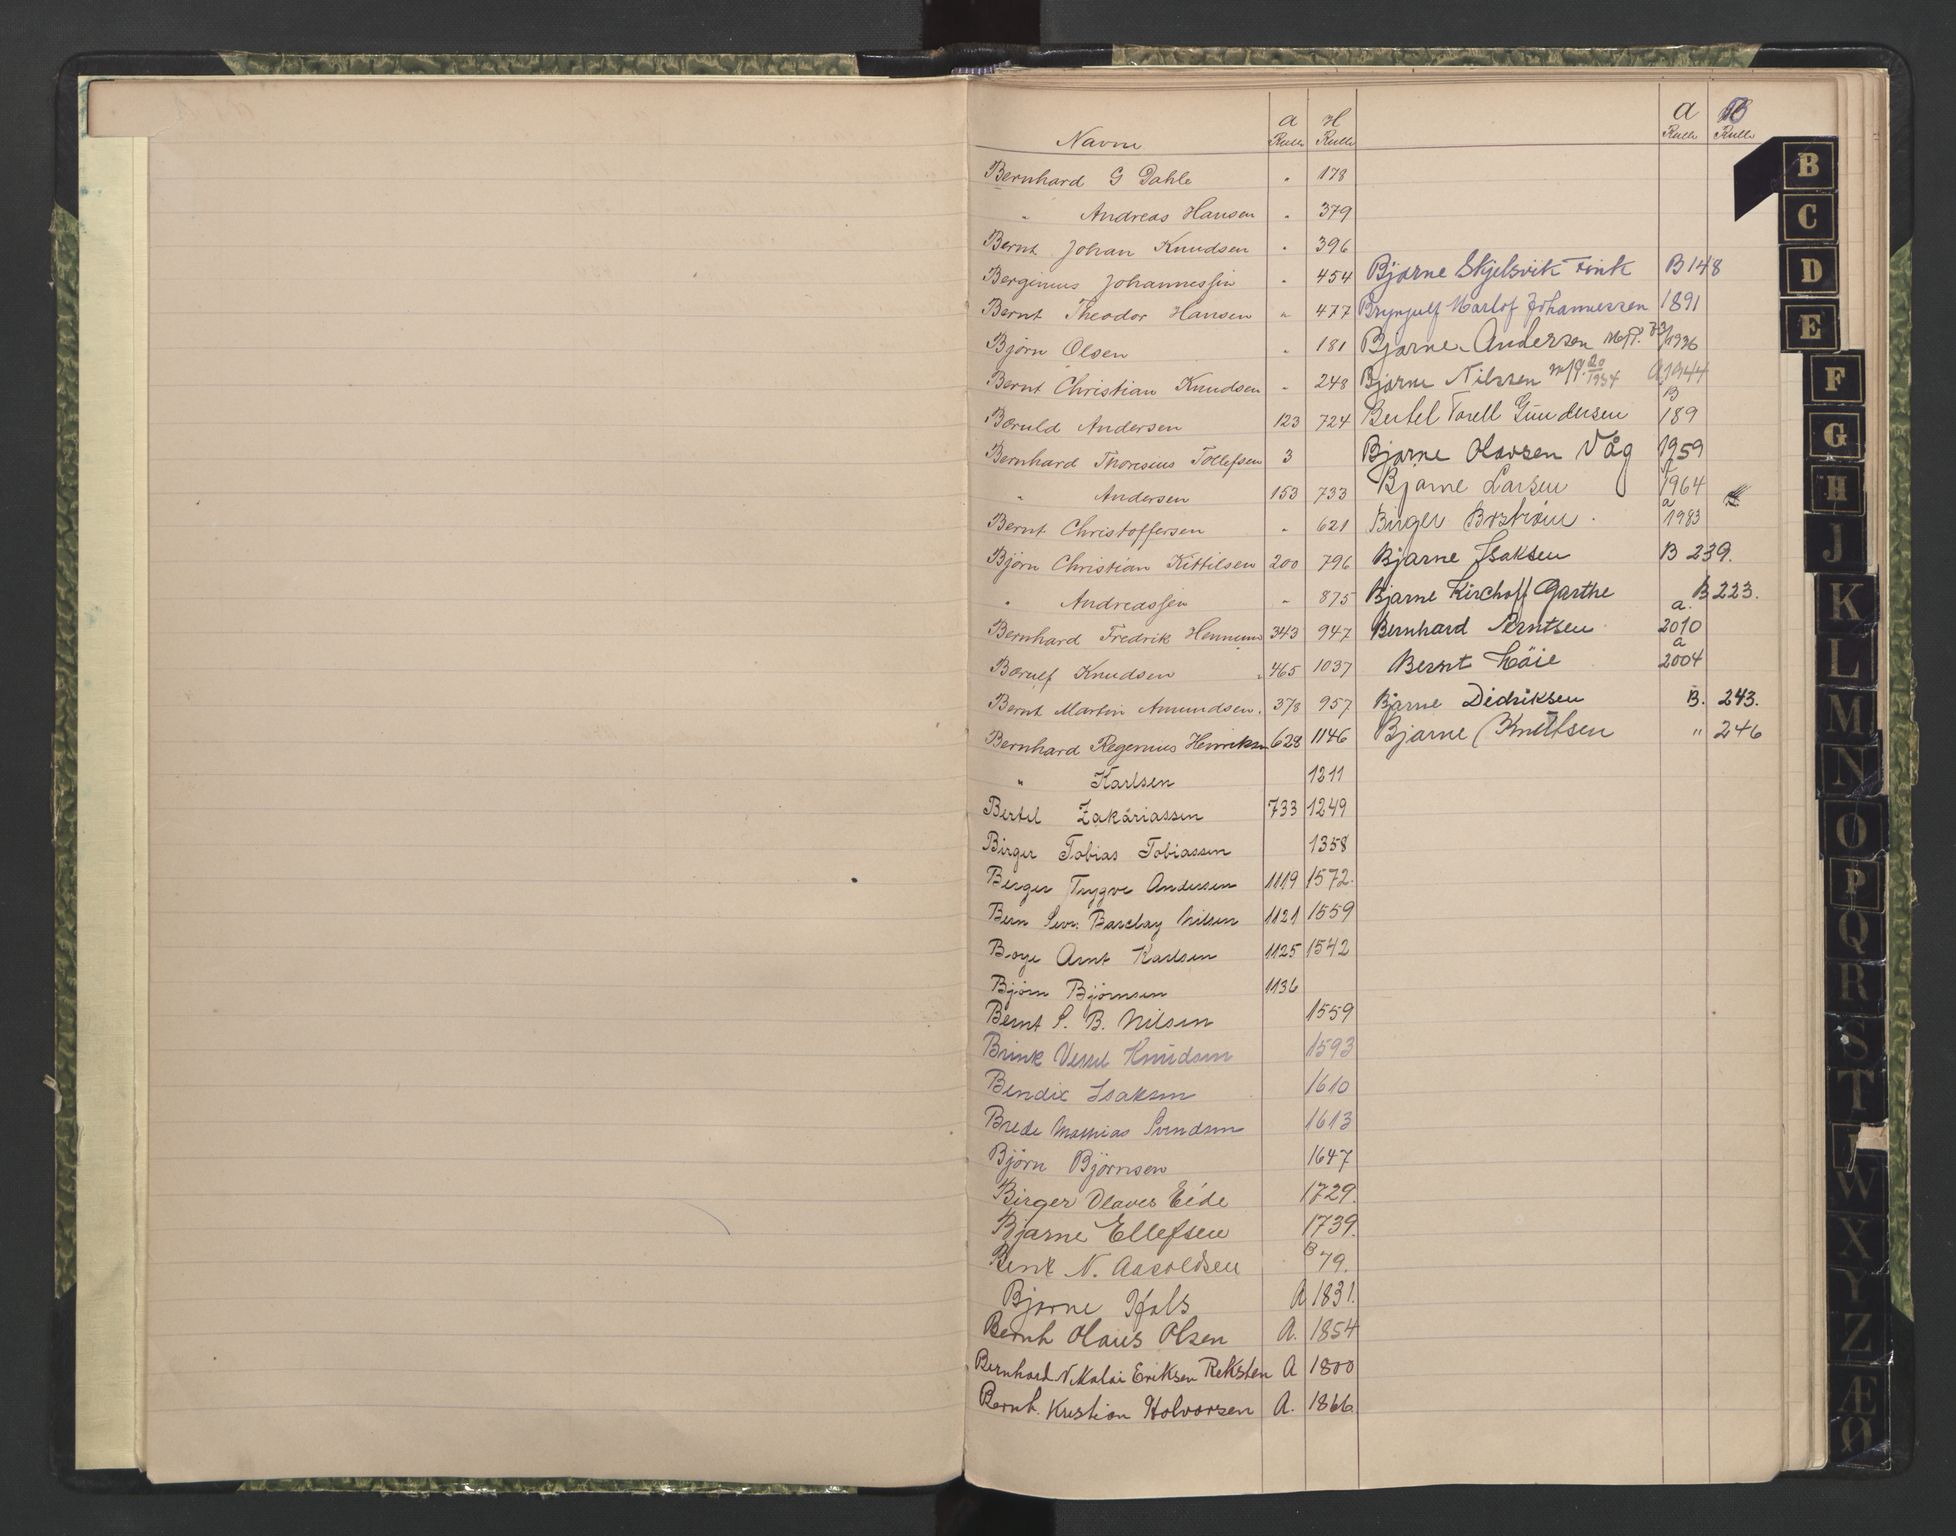 Navn a Rulle H Rulle a Rulle B Rulle
Bernhard G Dahle " 178
" Andreas Hansen " 379
Bernt Johan Knudsen " 396
Berginius Johannessen " 454
Bernt Theodor Hansen " 477
Björn Olsen " 181
Bernt Christian Knudsen " 248
Baruld Andersen 123 724
Bernhard Thoresius Tollefsen 3
" Andersen 153 733
Bernt Christoffersen " 621
Björn Christian Kittilsen 200 796
" Andreassen " 875
Bernhard Fredrik Hennum 343 947
Barulf Knudsen 465 1037
Bernt Martin Amundsen. 378 957
Bernhard Regenius Henriksen 628 1146
" Karlsen 1211
Bertel Zakariassen 733 1249
Birger Tobias Tobiassen 1358
Berger Trygve Andersen 1119 1572.
Bern Sevr. Barclay Nilsen 1121 1559
Boye Arnt Karlsen 1125 1542
Bjørn Bjørnsen 1136
Bernt S. B. Nilsen 1559
Brink Vessel Knudsen 1593
Bendix Isaksen 1610
Brede Mathias Svendsen 1613
Bjørn Bjørnsen 1647
Birger Olaves Eide 1729.
Bjarne Ellefsen 1739.
Bent N. Aasoldsen B 79.
Bjarne Hals A 1831.
Bernh Olaus Olsen A. 1854
Bernhard Nikolai Eriksen Reksten A 1800
Bernh. Kristian Halvorsen A. 1866.
Bjarne Skjelsvik Fink B 148
Brynjulf Harlof Johannessen 1891
Bjarne Andersen 1936
Bjarne Nilssen 20/1934 A 1944
Bertel Torell Gundersen B 189
Bjarne Olavsen Våg 1959
Bjarne Larsen 1964
Birger Bostrøm a 1983
Bjarne Isaksen B 239.
Bjarne Kirchoff Garthe B 223.
Bernhard Berntsen a. 2010
Bernt Høie a 2004
Bjarne Didriksen B. 243.
Bjarne Knutsen " 246
B
C
D
E
F
G
H
J
K
L
M
N
O
P
Q
R
S
T
W
X
Y
Z
Æ
Ø